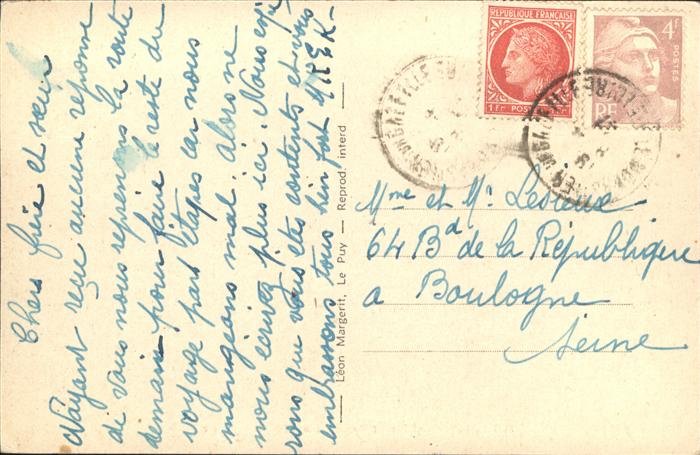 Chers frère et sœur
N'ayant reçu aucune reponse
de vous nous reprenons la route
demain pour faire le reste du
voyage par étapes car nous
mangeons mal. alors ne
nous écrivez plus ici. Nous espé
rons que vous êtes contents et vous
embrassons tous bien fort
Léon Margerit, Le Puy — Reprod. interd
REPUBLIQUE FRANÇAISE
1F POSTES
4F
POSTES
RF
Mme et Mr Lesieux
64 Bd de la République
a Boulogne
Seine